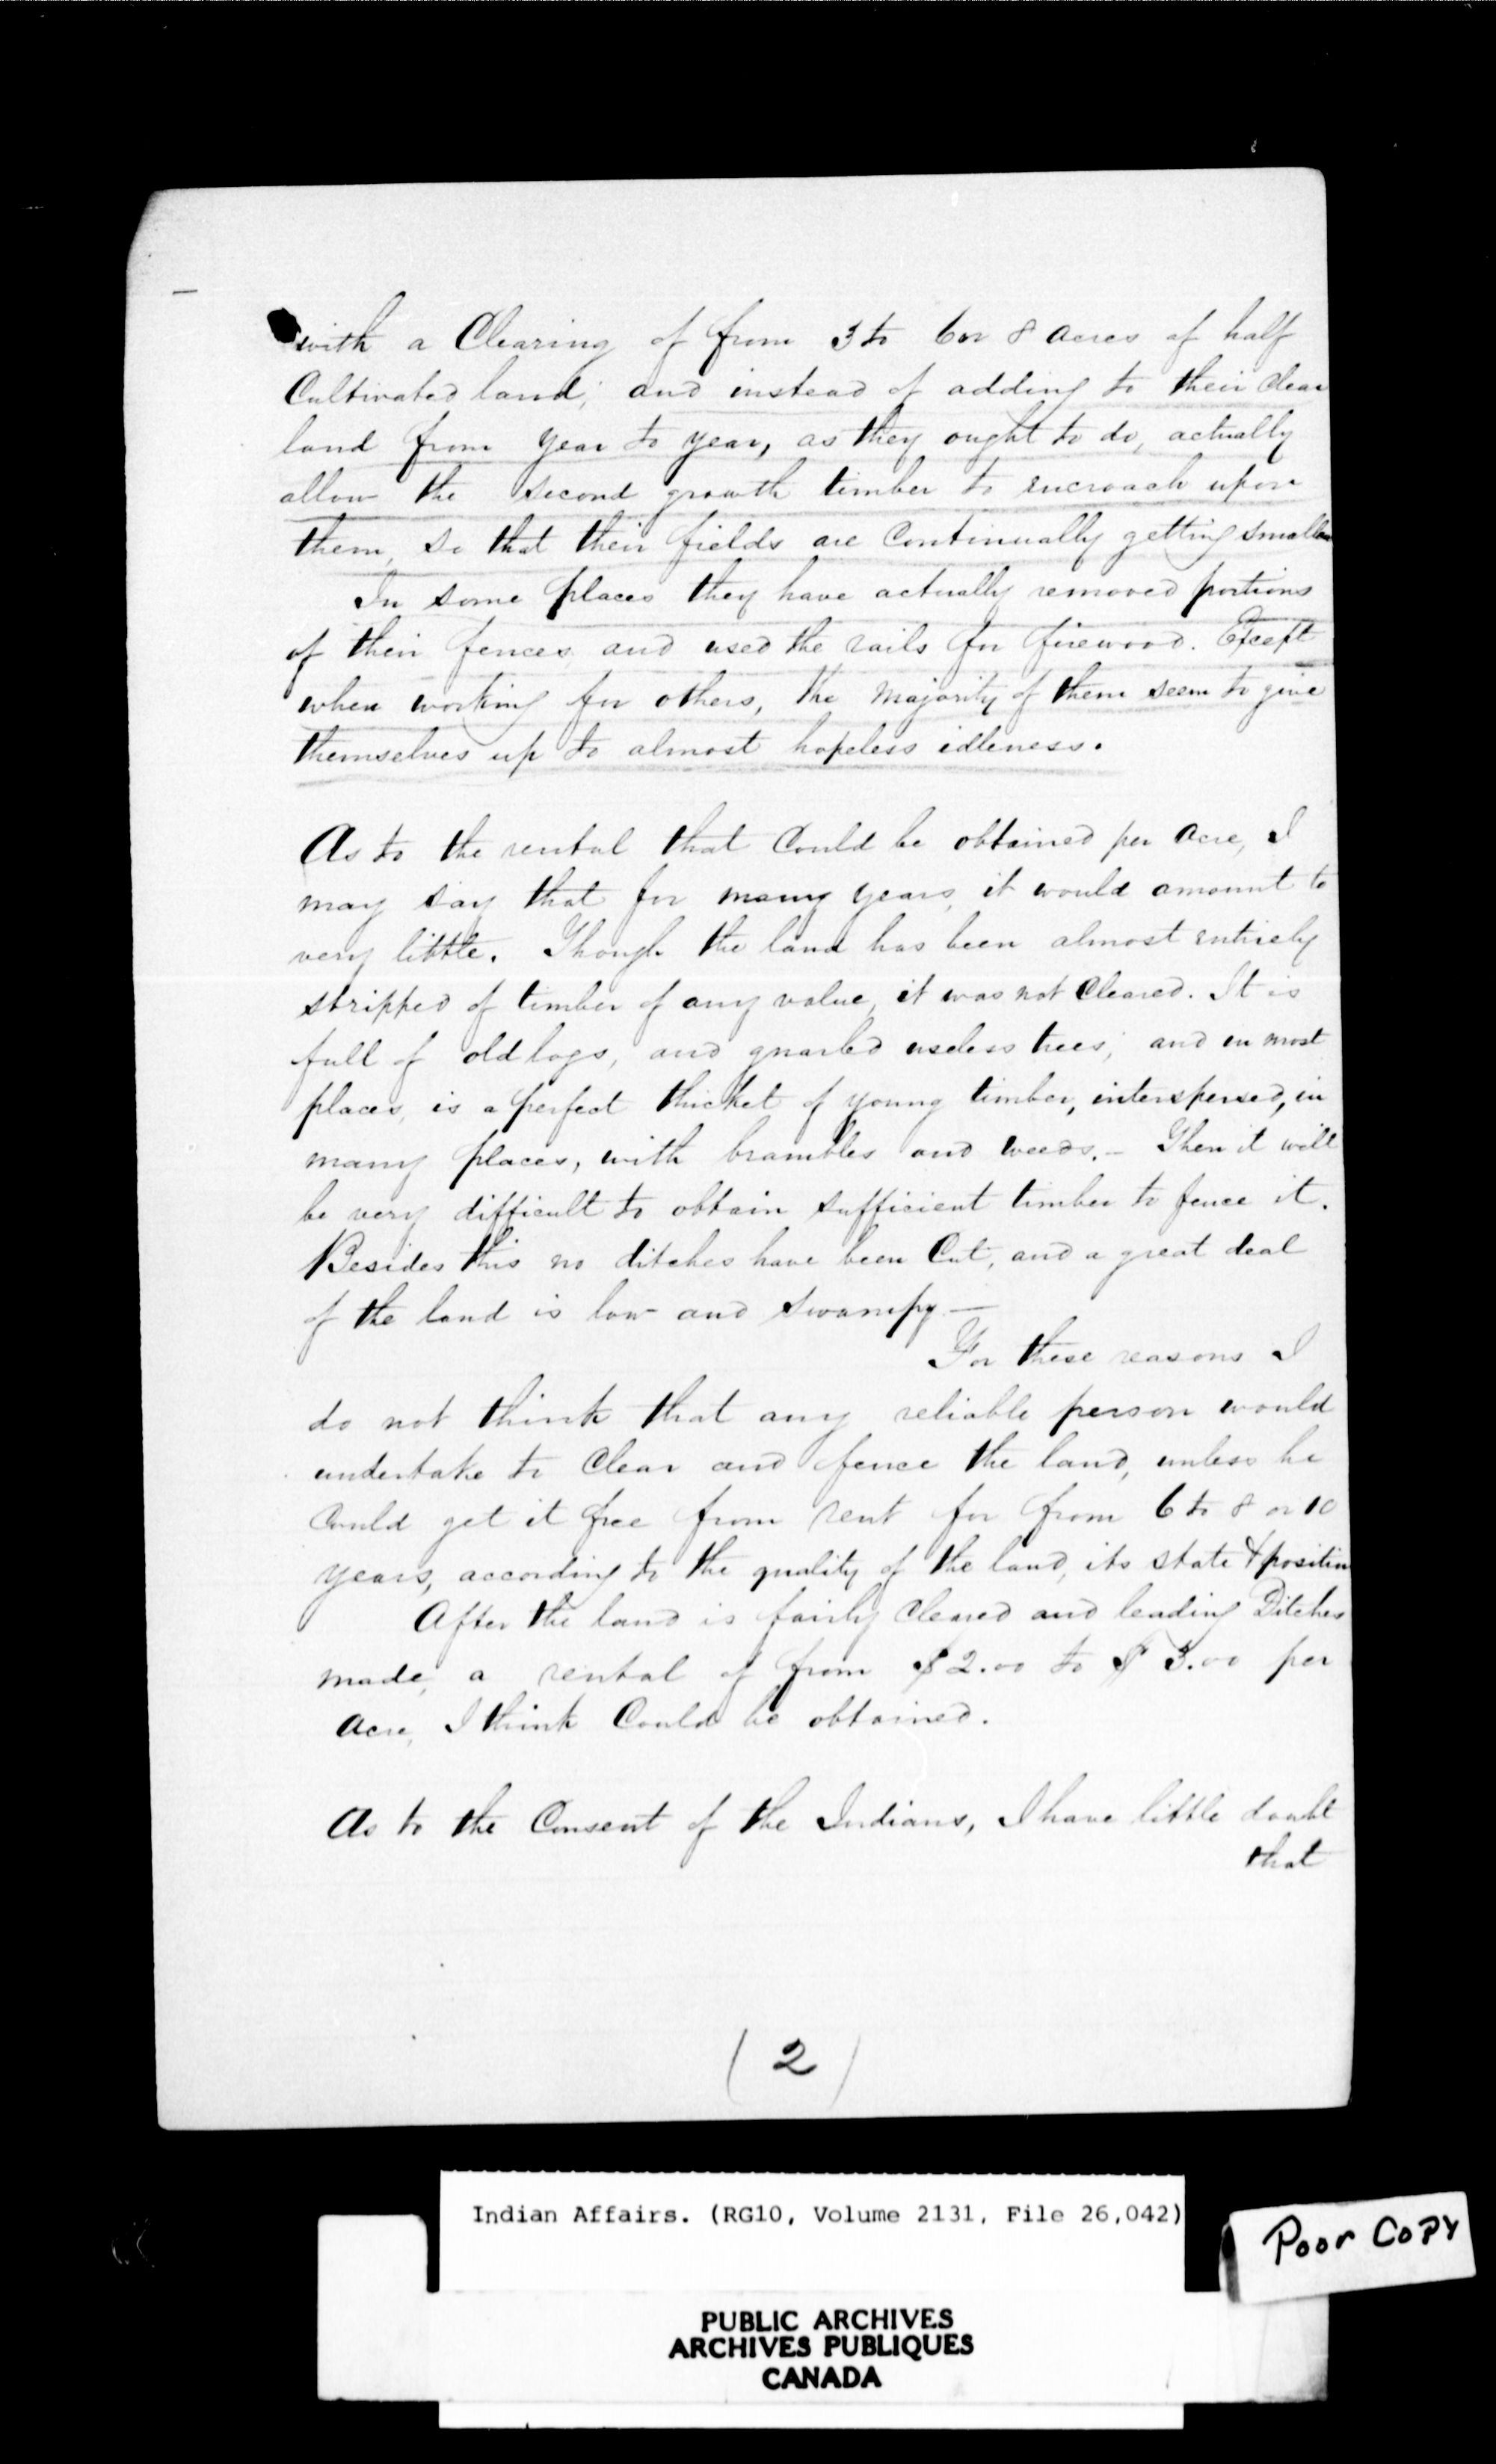 with a Clearing of from 3 to 6 or 8 acres of half
Cultivated land; and instead of adding to their Clear
land from year to year, as they ought to do, actually
allow the second growth timber to encroach upon
them, so that their fields are Continually getting smaller
In some places they have actually removed portions
of their fences and used the rails for firewood. Except
when working for others, the majority of them seem to give
themselves up to almost hopeless idleness.
As to the rental that Could be obtained per Acre, I
may say that for many years, it would amount to
very little. Though the land has been almost entirely
stripped of timber of any value, it was not Cleared. It is
full of old logs, and gnarled useless trees; and in most
places, is a perfect thicket of young timber, interspersed, in
many places, with brambles and weeds. – Then it will
be very difficult to obtain sufficient timber to fence it.
Besides this no ditches have been Cut, and a great deal
of the land is low and swampy —
For these reasons I
do not think that any reliable person would
undertake to Clear and fence the land, unless he
Could get it free from rent for from 6 to 8 or 10
years, according to the quality of the land, its state & position
After the land is fairly Cleared and leading Ditches
made, a rental of from $2.00 to $3.00 per
Acre, I think Could be obtained.
As to the Consent of the Indians, I have little doubt
that
(2)
Indian Affairs. (RG10, Volume 2131, File 26,042)
Poor Copy
PUBLIC ARCHIVES
ARCHIVES PUBLIQUES
CANADA